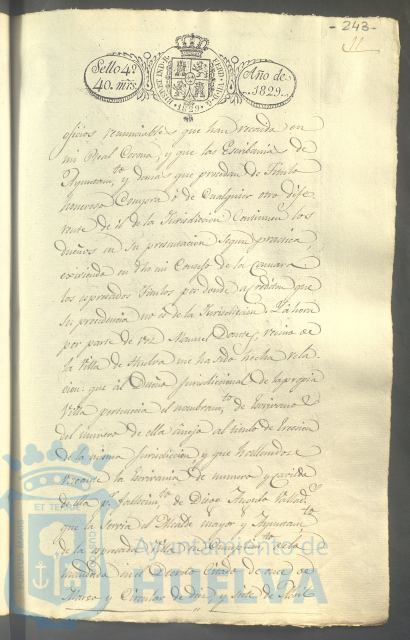 - 243 -
11
Sello 4º
40. mrs.
Año de
1829.
oficios renunciables que han recaido en
mi Real Corona, y que las Escribanias de
Ayuntam.to y demas que procedan de titulo
honeroso Compra ó de Cualquier otro dife
rente de el de la Jurisdiccion Continuen los
dueños en su presentacion segun practica,
exisiendo en el mi Consejo de la Camara
los espresados titulos por donde acrediten que
su procedencia no es de la Jurisdiccion. Y ahora
por parte de vos Manuel Donte, vecino de
la Villa de Huelva me ha sido hecha rela
cion: que al Dueño jurisdiccional de la propia
Villa pertenecia el nombram.to de Escrivano
del numero de ella anejo al titulo de Egresion
de la misma Jurisdiccion y que hallandose
vacante la Escrivania de numero y
de ella p.r fallecim.to de Diego
que la servia el Alcalde mayor y Ayuntam.to
de la espresada Villa
en el Decreto Citado de once de
Marzo y Circular de diez y siete de Abril
Ayuntamiento de
HUELVA